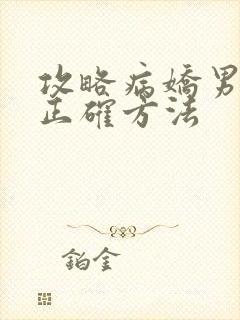 攻略病嬌男
正確方法
鉑金